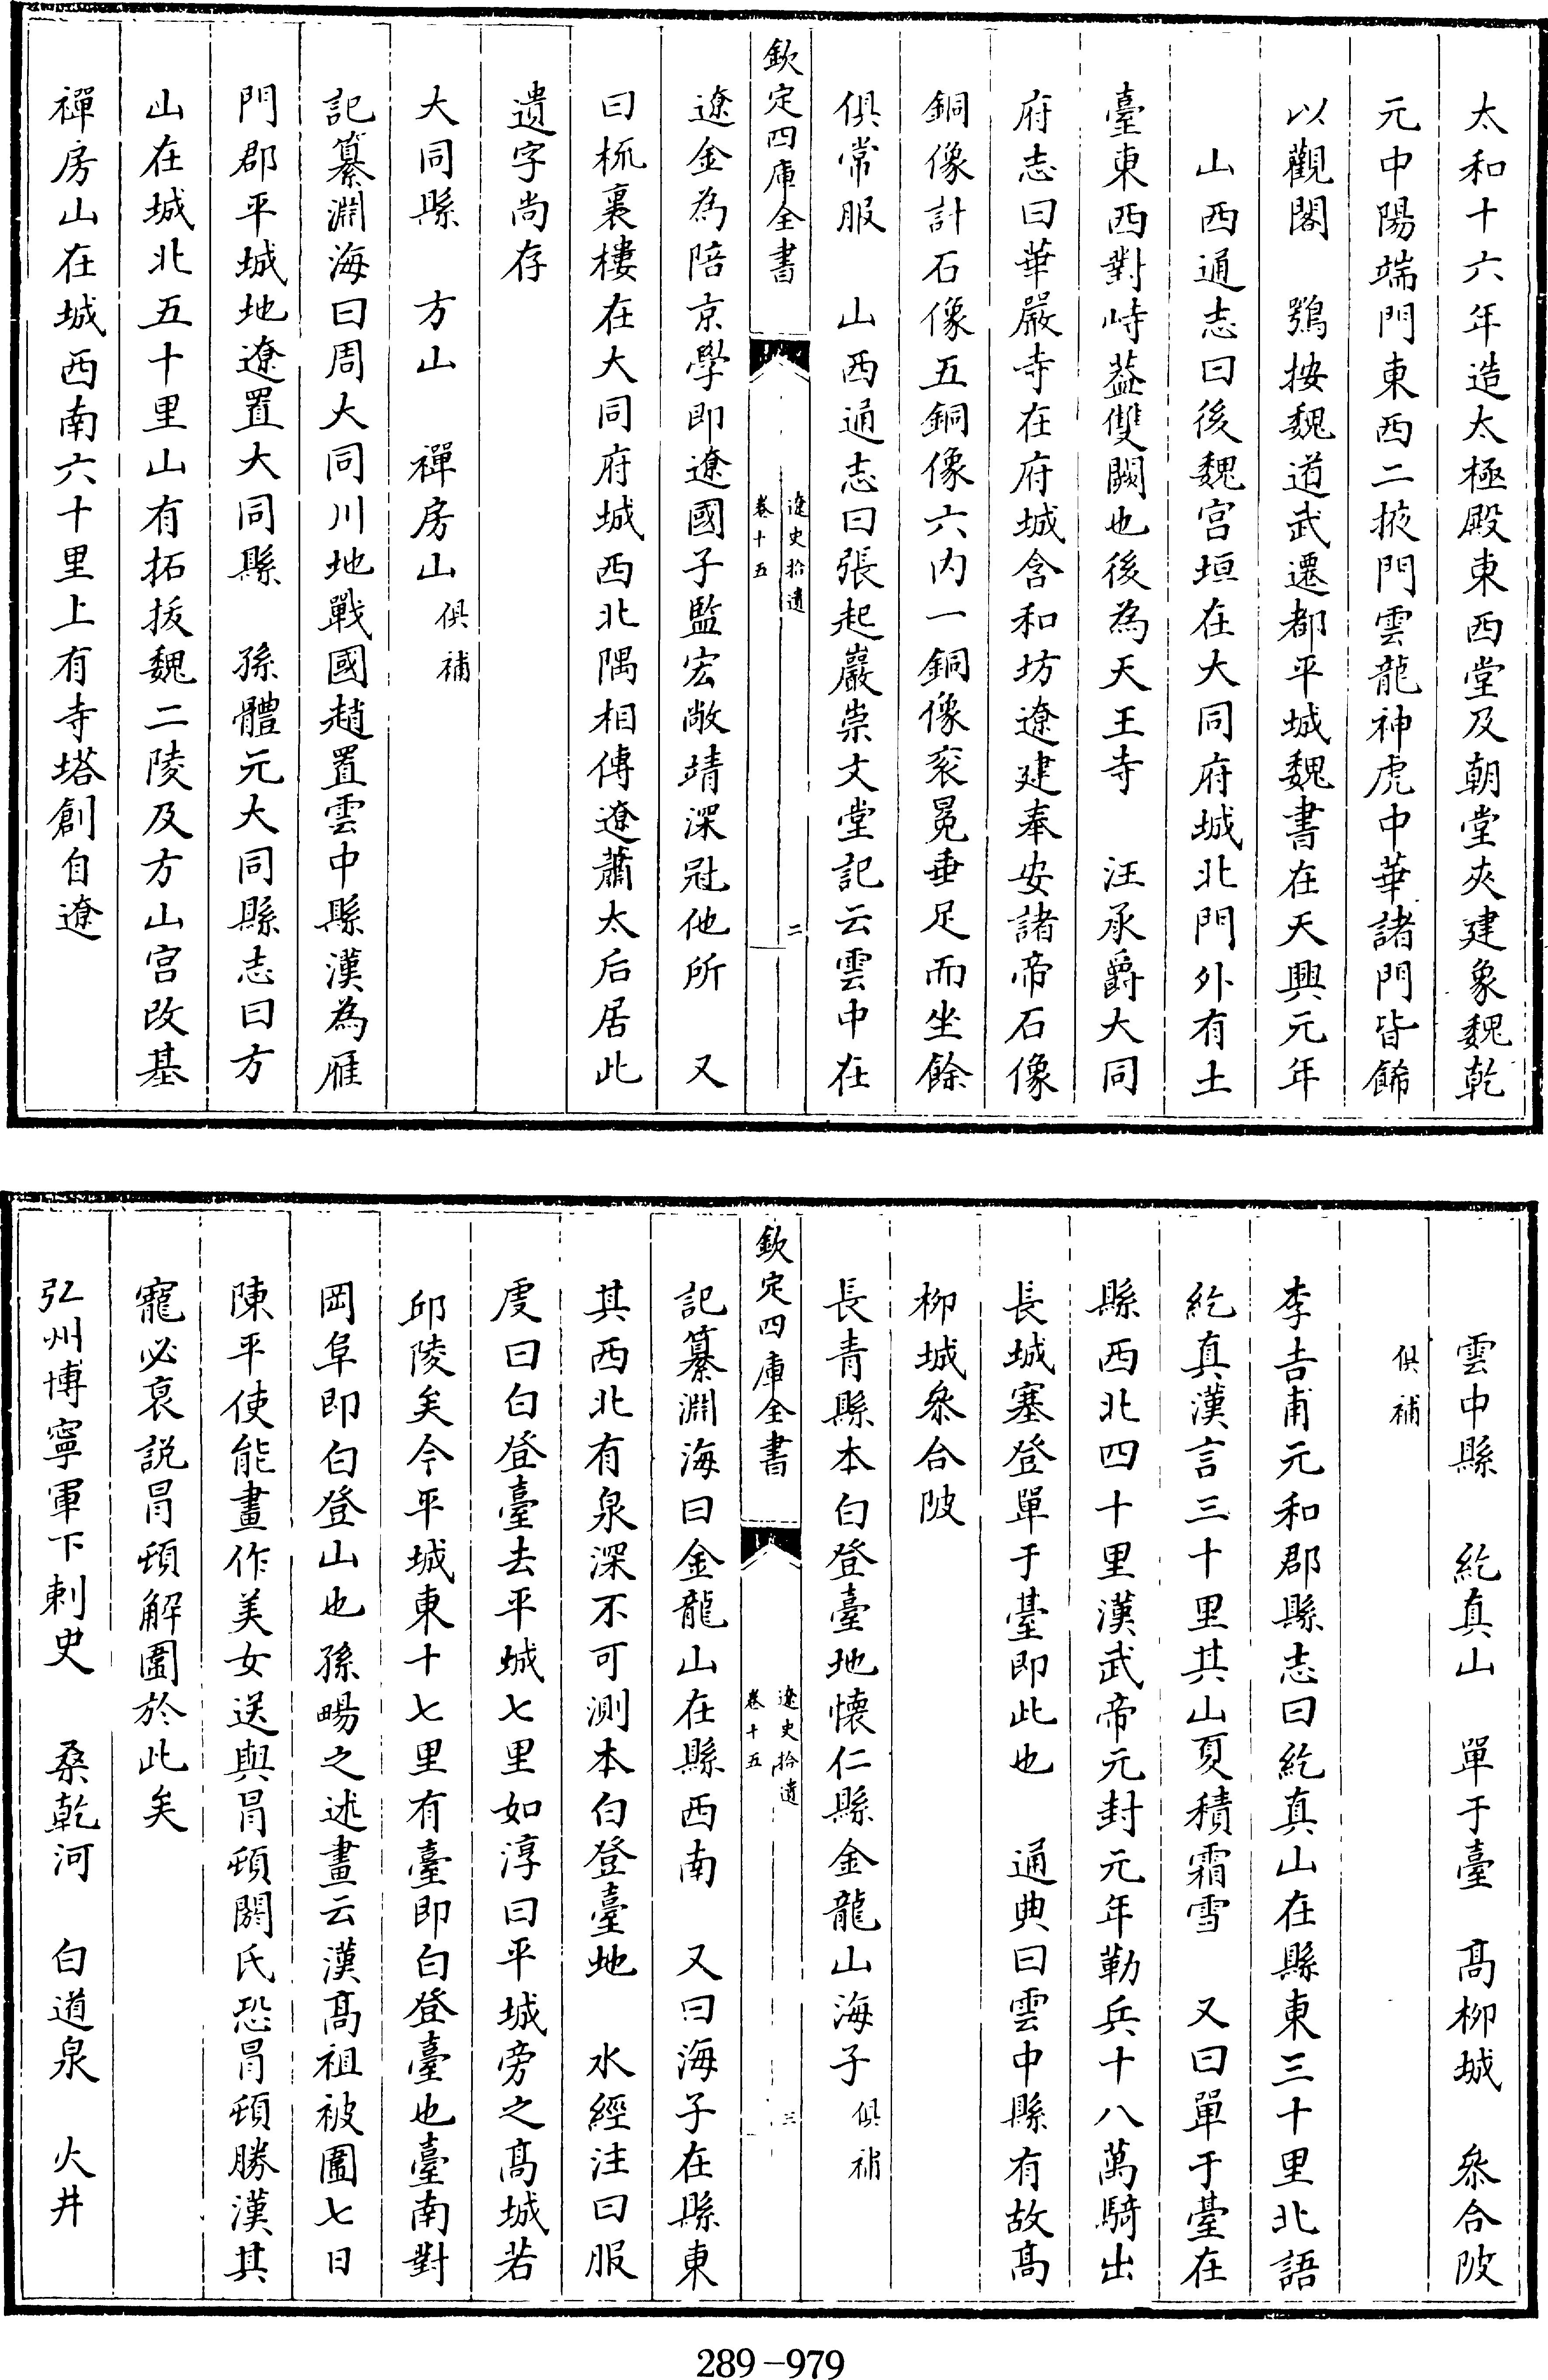 太和十六年造太極殿東西堂及朝堂夾建象魏乾
元中陽端門東西二掖門雲龍神虎中華諸門皆餙
以觀閣　鶚按魏道武遷都平城魏書在天興元年
山西通志曰後魏宫垣在大同府城北門外有土
臺東西對峙葢雙闕也後為天王寺　汪承爵大同
府志曰華嚴寺在府城含和坊遼建奉安諸帝石像
銅像計石像五銅像六内一銅像衮冕垂足而坐餘
俱常服　山西通志曰張起巖崇文堂記云雲中在
欽定四庫全書
遼史拾遺
卷十五
二
遼金為陪京學即遼國子監宏敞靖深冠他所　又
曰梳裹樓在大同府城西北隅相傳遼蕭太后居此
遺字尚存
大同縣　方山　禪房山俱補
記纂淵海曰周大同川地戰國趙置雲中縣漢為雁
門郡平城地遼置大同縣　孫體元大同縣志曰方
山在城北五十里山有拓拔魏二陵及方山宫改基
禪房山在城西南六十里上有寺塔創自遼
雲中縣　紇真山　單于臺　髙柳城　叅合陂
俱補
李吉甫元和郡縣志曰紇真山在縣東三十里北語
紇真漢言三十里其山夏積霜雪　又曰單于臺在
縣西北四十里漢武帝元封元年勒兵十八萬騎出
長城塞登單于臺即此也　通典曰雲中縣有故髙
柳城叅合陂
長青縣本白登臺地懐仁縣金龍山海子俱補
欽定四庫全書
遼史拾遺
卷十五
三
記纂淵海曰金龍山在縣西南　又曰海子在縣東
其西北有泉深不可測本白登臺地　水經注曰服
虔曰白登臺去平城七里如淳曰平城旁之髙城若
邱陵矣今平城東十七里有臺即白登臺也臺南對
岡阜即白登山也孫暢之述畫云漢髙祖被圍七日
陳平使能畫作美女送與冒頓閼氏恐冒頓勝漢其
寵必衰説冒頓解圍於此矣
弘州博寧軍下刺史　桑乾河　白道泉　火井
289-979